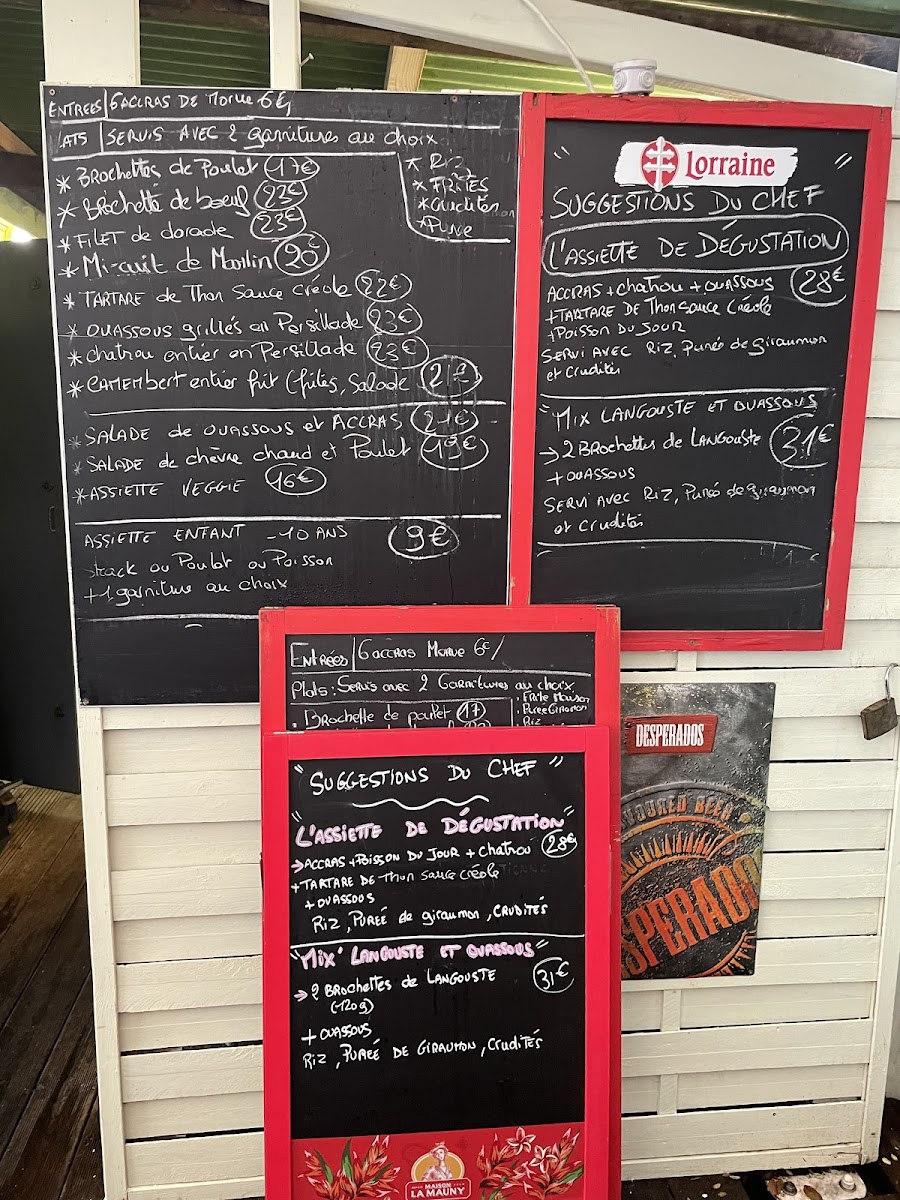 ENTREES | 6 ACCRAS DE MORUE 6€
ATS | SERVIS AVEC 2 garnitures au choix
* BROCHETTES de POULET 17€
* Brochette de boeuf 23€
* FILET de dorade 23€
* Mi-cuit de Marlin 20€
* TARTARE de Thon Sauce creole 22€
* ouassous grillés en Persillade 23€
* chatrou entier en Persillade 23€
* CAMEMBERT entier frit (frites, salade
* Riz
* FRITES
* Crudités
* Purée
* SALADE de ouassous et ACCRAS 21€
* SALADE de chèvre chaud et Poulet
* ASSIETTE VEGGIE 16€
ASSIETTE ENFANT -10 ANS 9€
Steack ou Poulet ou Poisson
+1 garniture au choix
Lorraine
SUGGESTIONS DU CHEF
L'ASSIETTE DE DÉGUSTATION
ACCRAS + chatrou + ouassous 28€
+TARTARE DE Thon sauce Créole
+POISSON DU JOUR
SERVI AVEC RIZ, Purée de giraumon
et Crudités
"MIX LANGOUSTE ET OUASSOUS
→ 2 BROCHETTES de LANGOUSTE 31€
+ ouassous
SERVI AVEC RIZ, Purée de giraumon
et Crudités
ENTRÉES | 6 accras Morue 6€/
Plats: Servis avec 2 Garnitures au choix
. Brochette de poulet 17
. Frite Maison
. Puree Giraumon
. Riz
DESPERADOS
"SUGGESTIONS DU CHEF"
"L'ASSIETTE DE DÉGUSTATION"
→ ACCRAS + POISSON DU JOUR + chatrou 28€
+ TARTARE DE Thon sauce créole
+ OUASSOUS
RIZ, PUREÉ de giraumon, CRUDITÉS
"MIX" LANGOUSTE ET OUASSOUS"
→ 2 BROCHETTES de LANGOUSTE 31€
(-120g)
+ OUASSOUS
RIZ, PUREÉ DE GIRAUMON, CRUDITÉS
MAISON
LA MAUNY